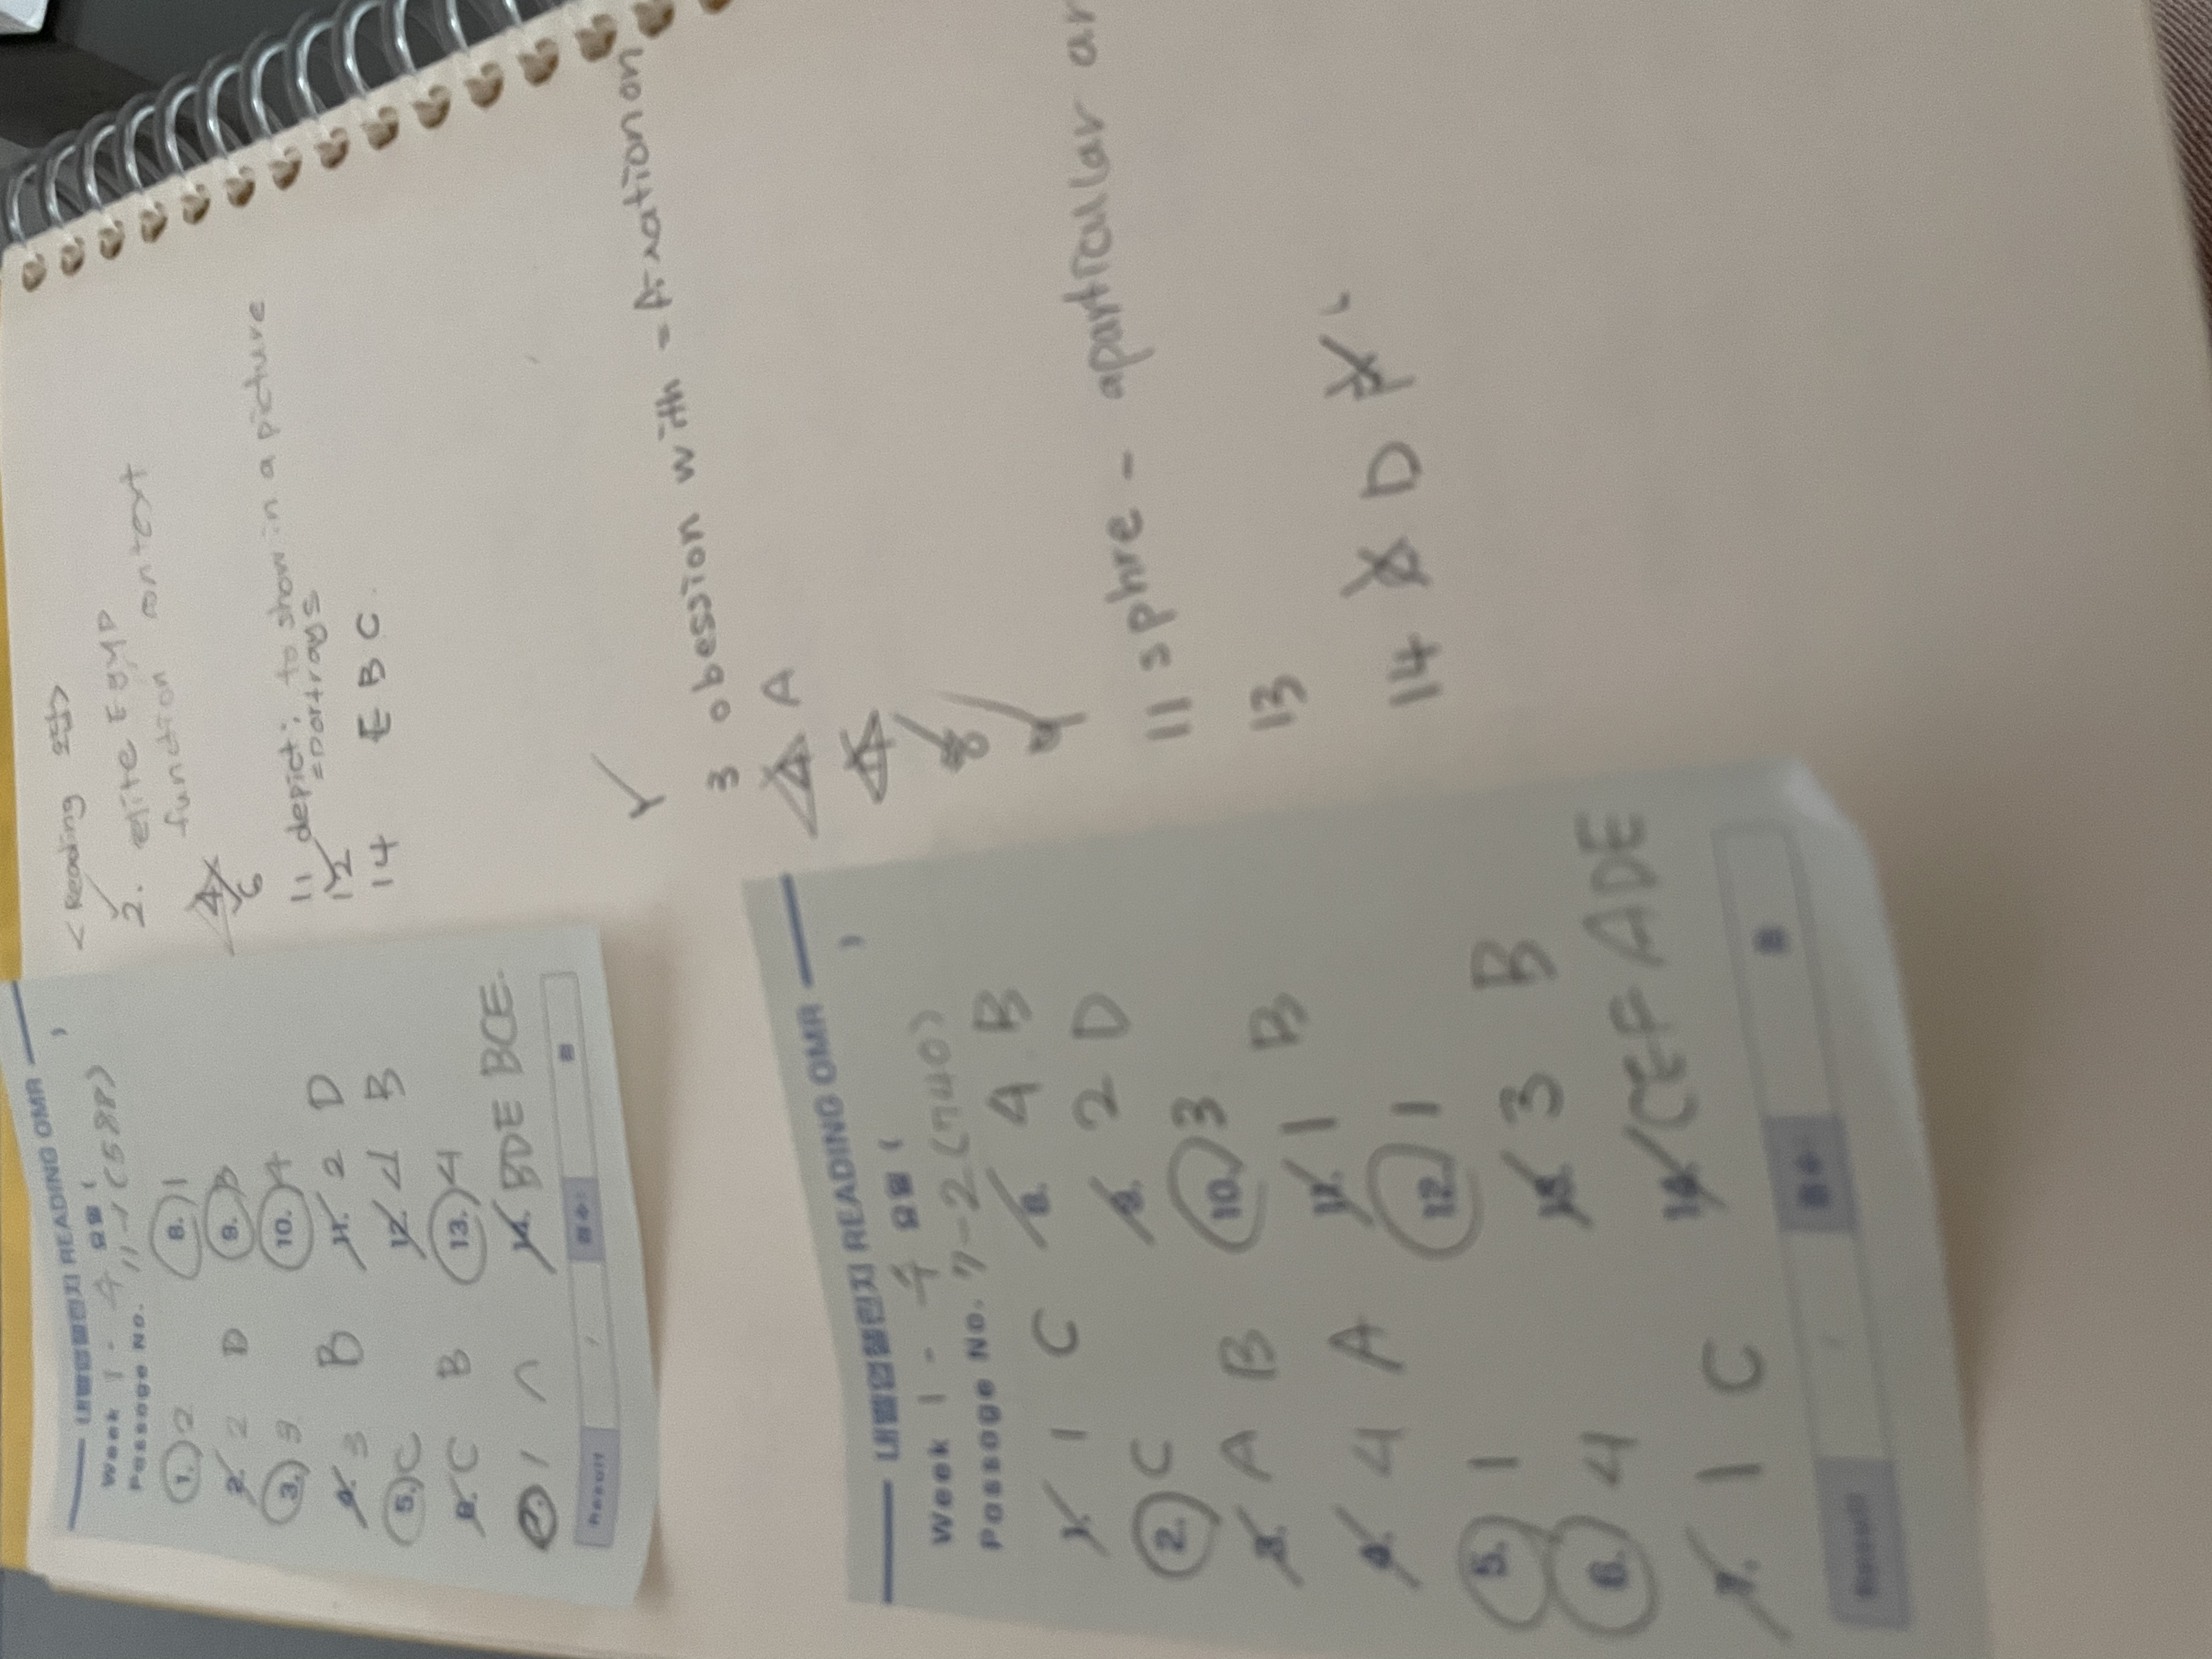 내벌업챌린지 READING OMR
Week 1 - 수 요일 ( )
Passage No.
1. 2
8. 1
2. 2 D
9. B
3. 3
10. 4
4. 3 B
11. 2 D
5. C
12. 4 B
6. C B
13. 4
7. 1
14. BDE BCE.
Result
점수
점
< Reading
2. elite Egyp
function context
6
11 depict; to show in a picture
= portrays
12
14 E B C.
내벌업챌린지 READING OMR
Week 1 - 수 요일 ( )
Passage No. 7-2 (7740)
1. 1 C
8. 4 B
2. C
9. 2 D
3. A B
10. 3
4. 4 A
11. 1 B
5. 1
12. 1
6. 4
13. 3 B
7. 1 C
14. CEF ADE
Result
점수
점
3 obession with = A. xation on
4 A
8
9
11 sphre - aparticular ar
13
14 D